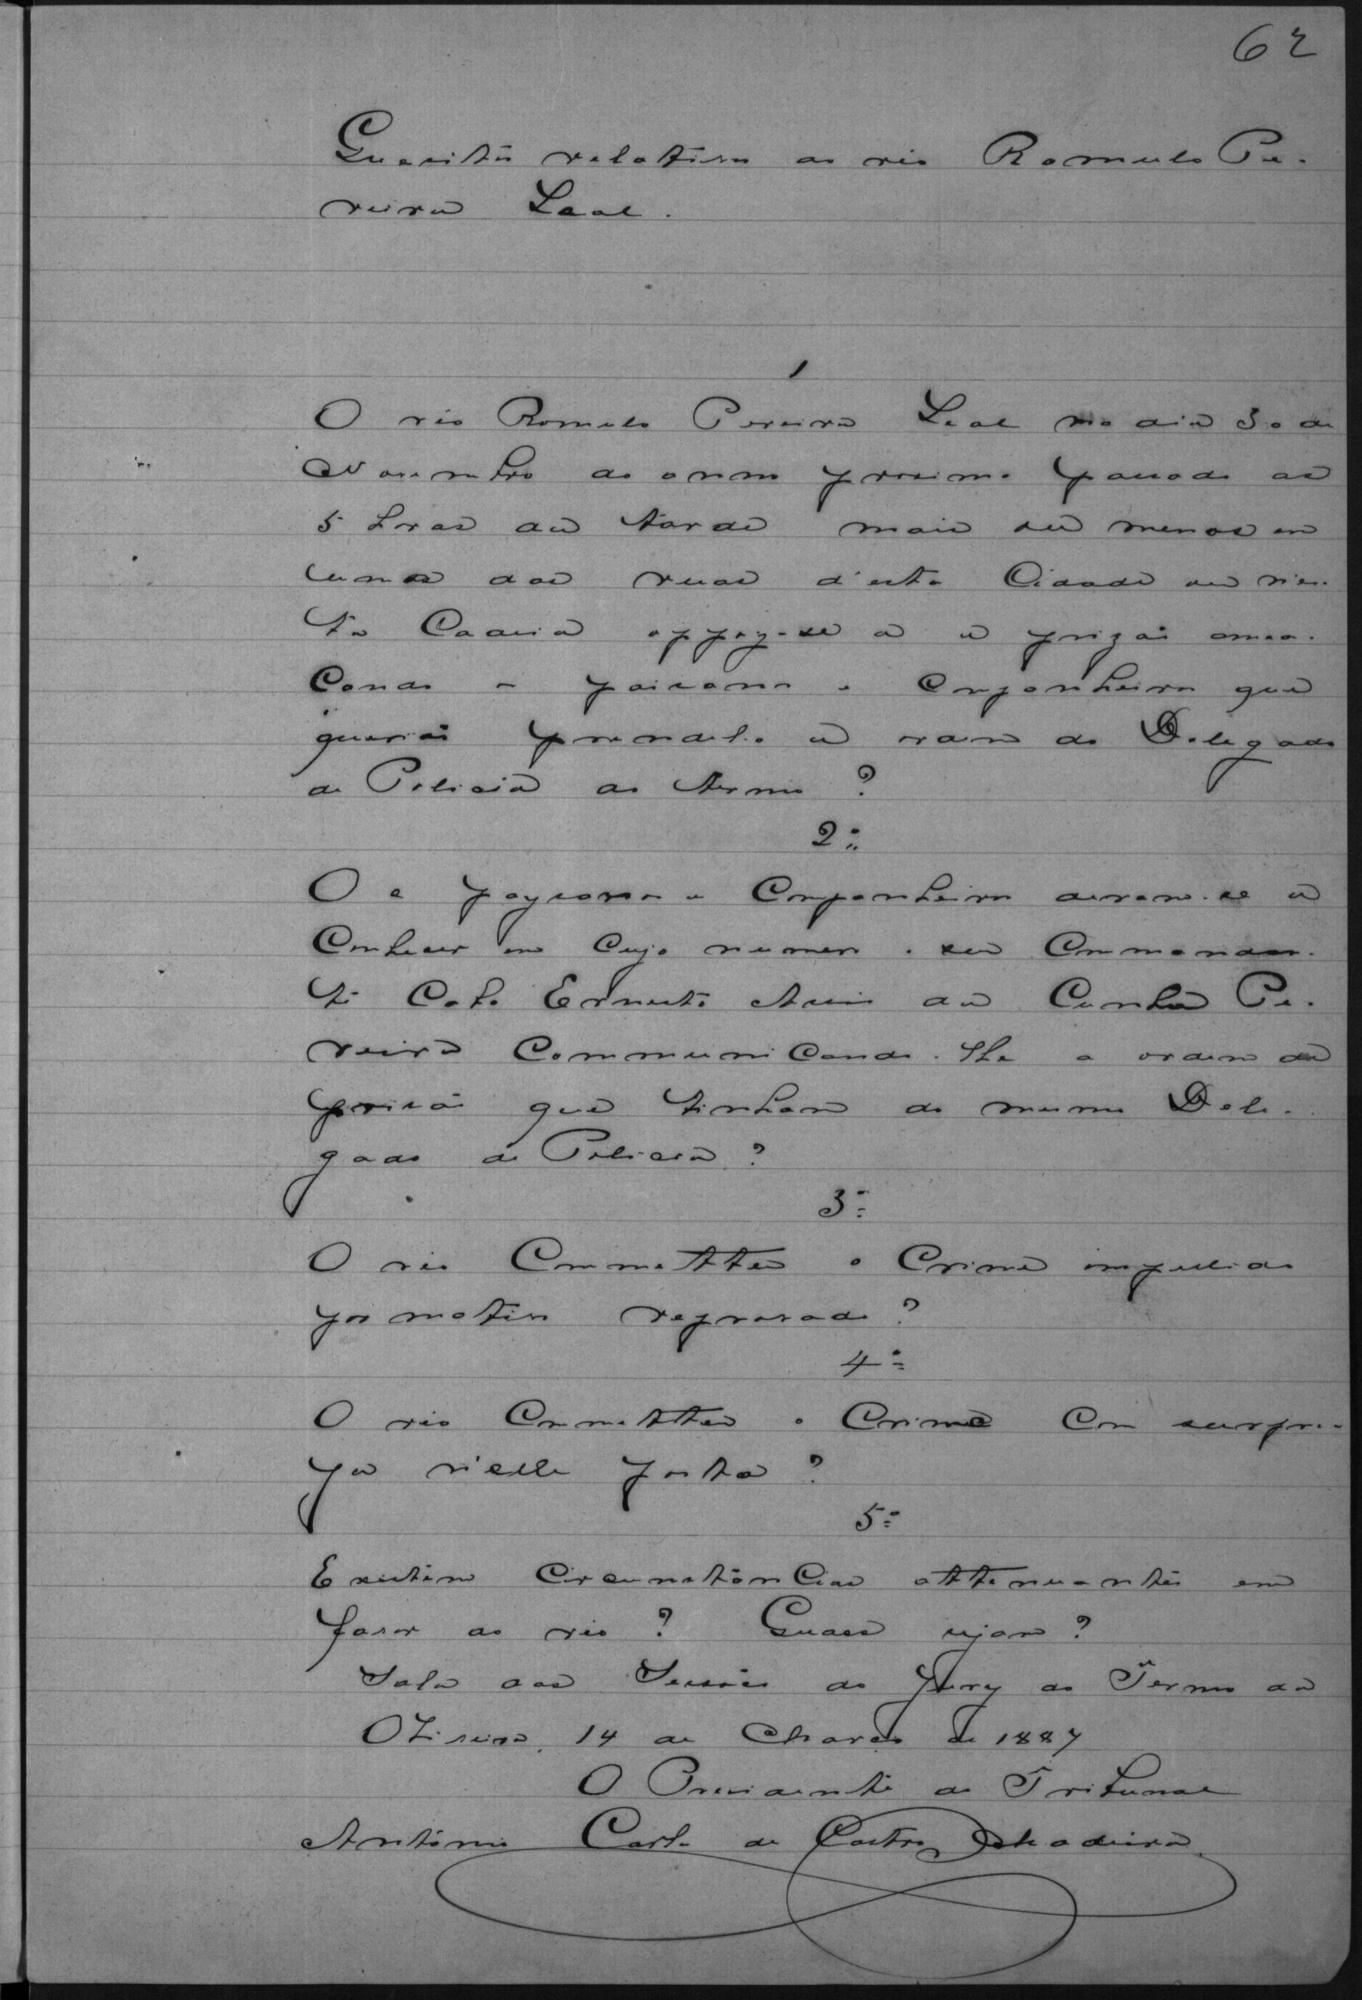 62
Quesitos relativos ao réo Romulo Pe-
reira Leal.
1
O réo Romulo Pereira Leal no dia 30 de
Novembro do anno proximo passado as
5 horas da tarde mais ou menos em
uma das ruas d'esta Cidade
oppoz-se a prizão amea-
çando a paisana e Companheiro que
querião prendel-o a ordem do Delegado
de Policia do termo?
2º
O paysano e Companheiro deram-se a
Conhecer em cujo numero o seu Comman­dan-
te Cabo Ernesto Assis da Cunha Pe-
reira Communicando-lhe a ordem de
prisão que tinham do mesmo Dele-
gado de Policia?
3º
O réo Commetteo o Crime impellido
por motivo reprovado?
4º
O réo Commetteo o Crime Com surpre-
za n'elle posta?
5º
Existem Circumstancias attenuantes em
favor do réo? Quaes sejam?
Sala das Sessões do Jury do Termo da
Oliveira, 14 de Março de 1887
O Presidente do Tribunal
Antonio Carlos de Castro Madeira